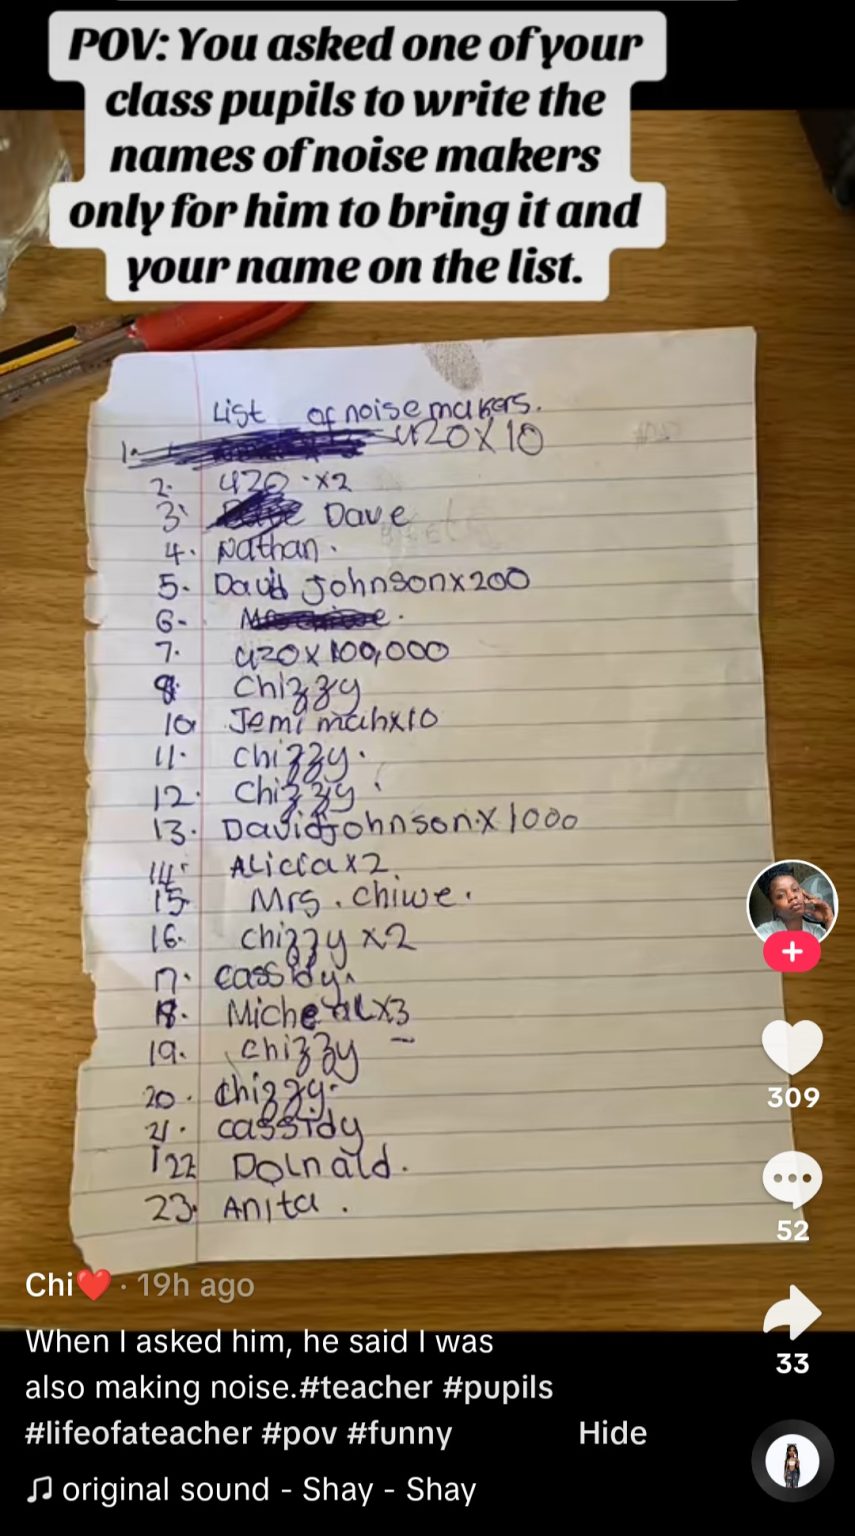 POV: You asked one of your
class pupils to write the
names of noise makers
only for him to bring it and
your name on the list.
List of noise makers.
1. 420X10
2. 420 .x2
3. Dave
4. Nathan.
5. David Johnsonx200
6-
7. 420x100,000
8. Chizzy
10. Jemimahx10
11. Chizzy.
12. Chizzy
13. DavidJohnson.X1000
14. Alicia x2.
15 Mrs. Chiwe.
16. Chizzy x2
17. Cassidy
18. Michealx3
19. Chizzy
20. Chizzy.
21. Cassidy
22 Dolnald.
23. Anita.
Chi❤️ · 19h ago
When I asked him, he said I was
also making noise.#teacher #pupils
#lifeofateacher #pov #funny Hide
original sound - Shay - Shay
309
52
33